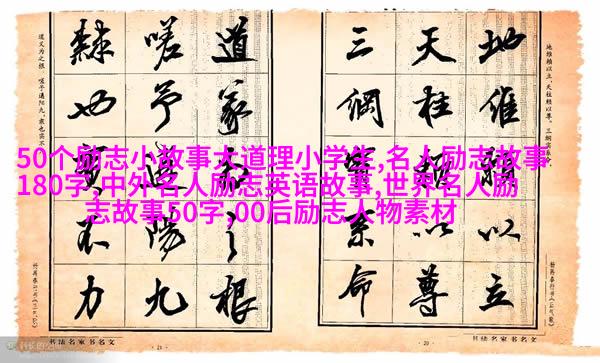 50个励志小故事大道理小学生,名人励志故事
180字,中外名人励志英语故事,世界名人励
志故事50字,00后励志人物素材
地維賴以立
天柱賴以尊
三綱實系命
道義為之根
嗟予遘陽九
隸也實不力
书法名家书名文
21
20
书法名家书名文